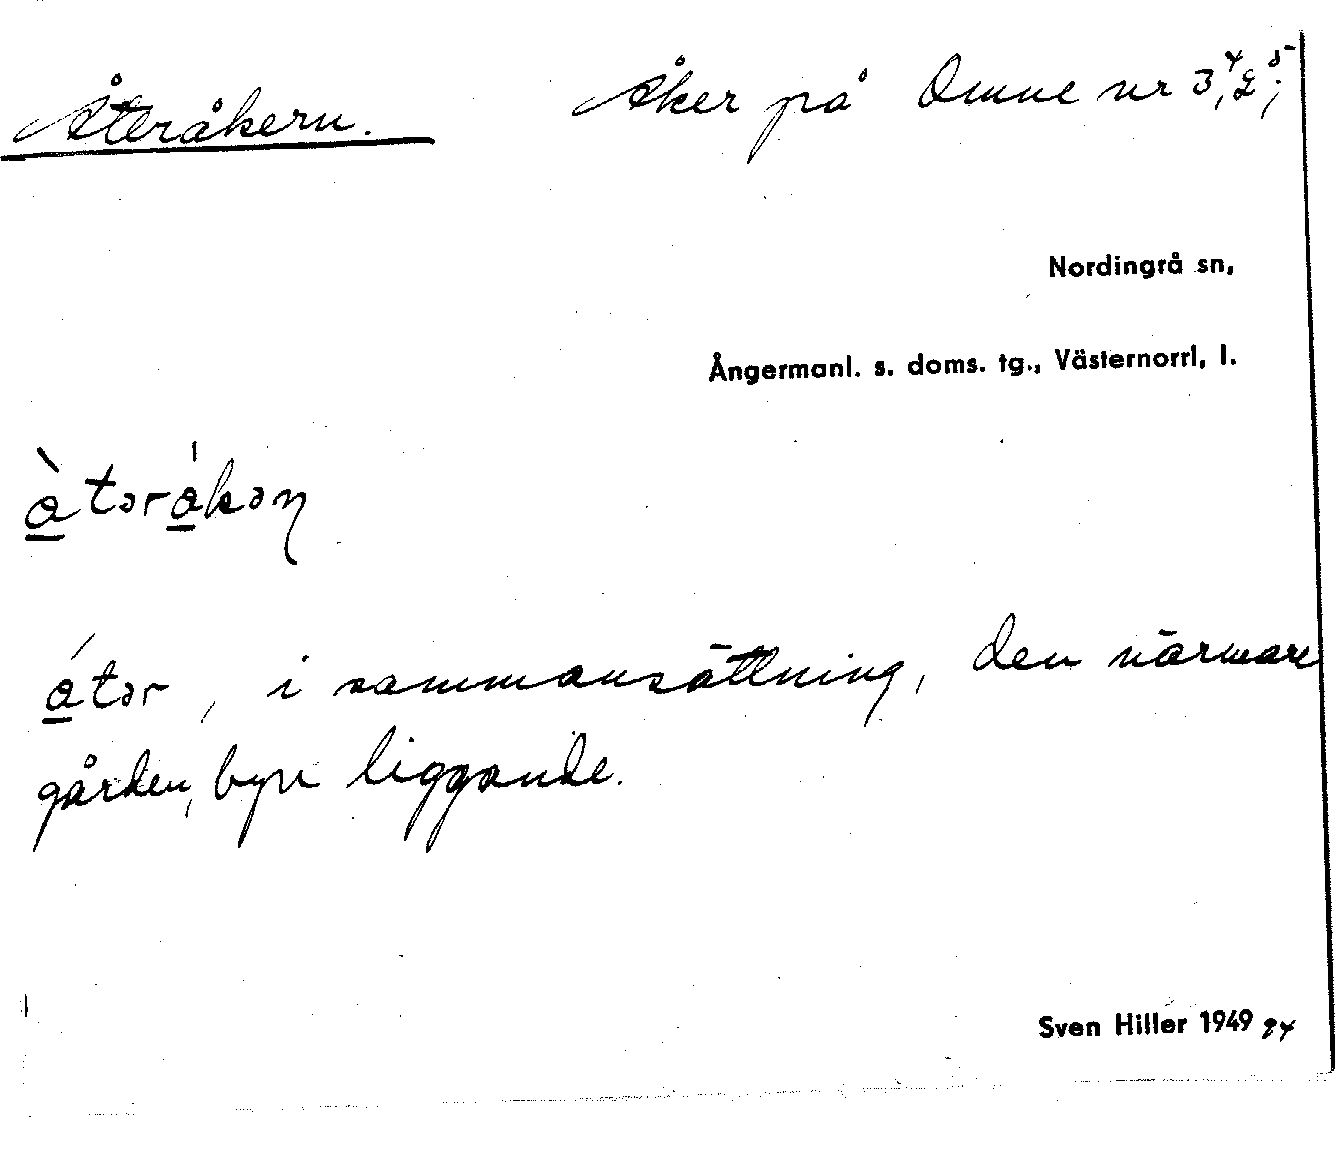 Återåkern. Åker på Omne nr 3⁴, 2⁵;
Nordingrå sn,
Ångermanl. s. doms. tg., Västernorrl, l.
à̲təra̲̍kəɳ
á̲tər, i sammansättning, den närmare
gården, byn liggande.
Sven Hiller 1949